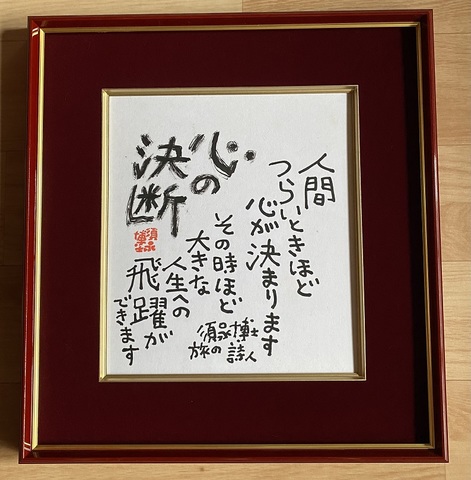 心の
決断
人間
つらいときほど
心が決まります
その時ほど
大きな
人生への
飛躍が
できます
須永博士
旅の詩人
須永
博士